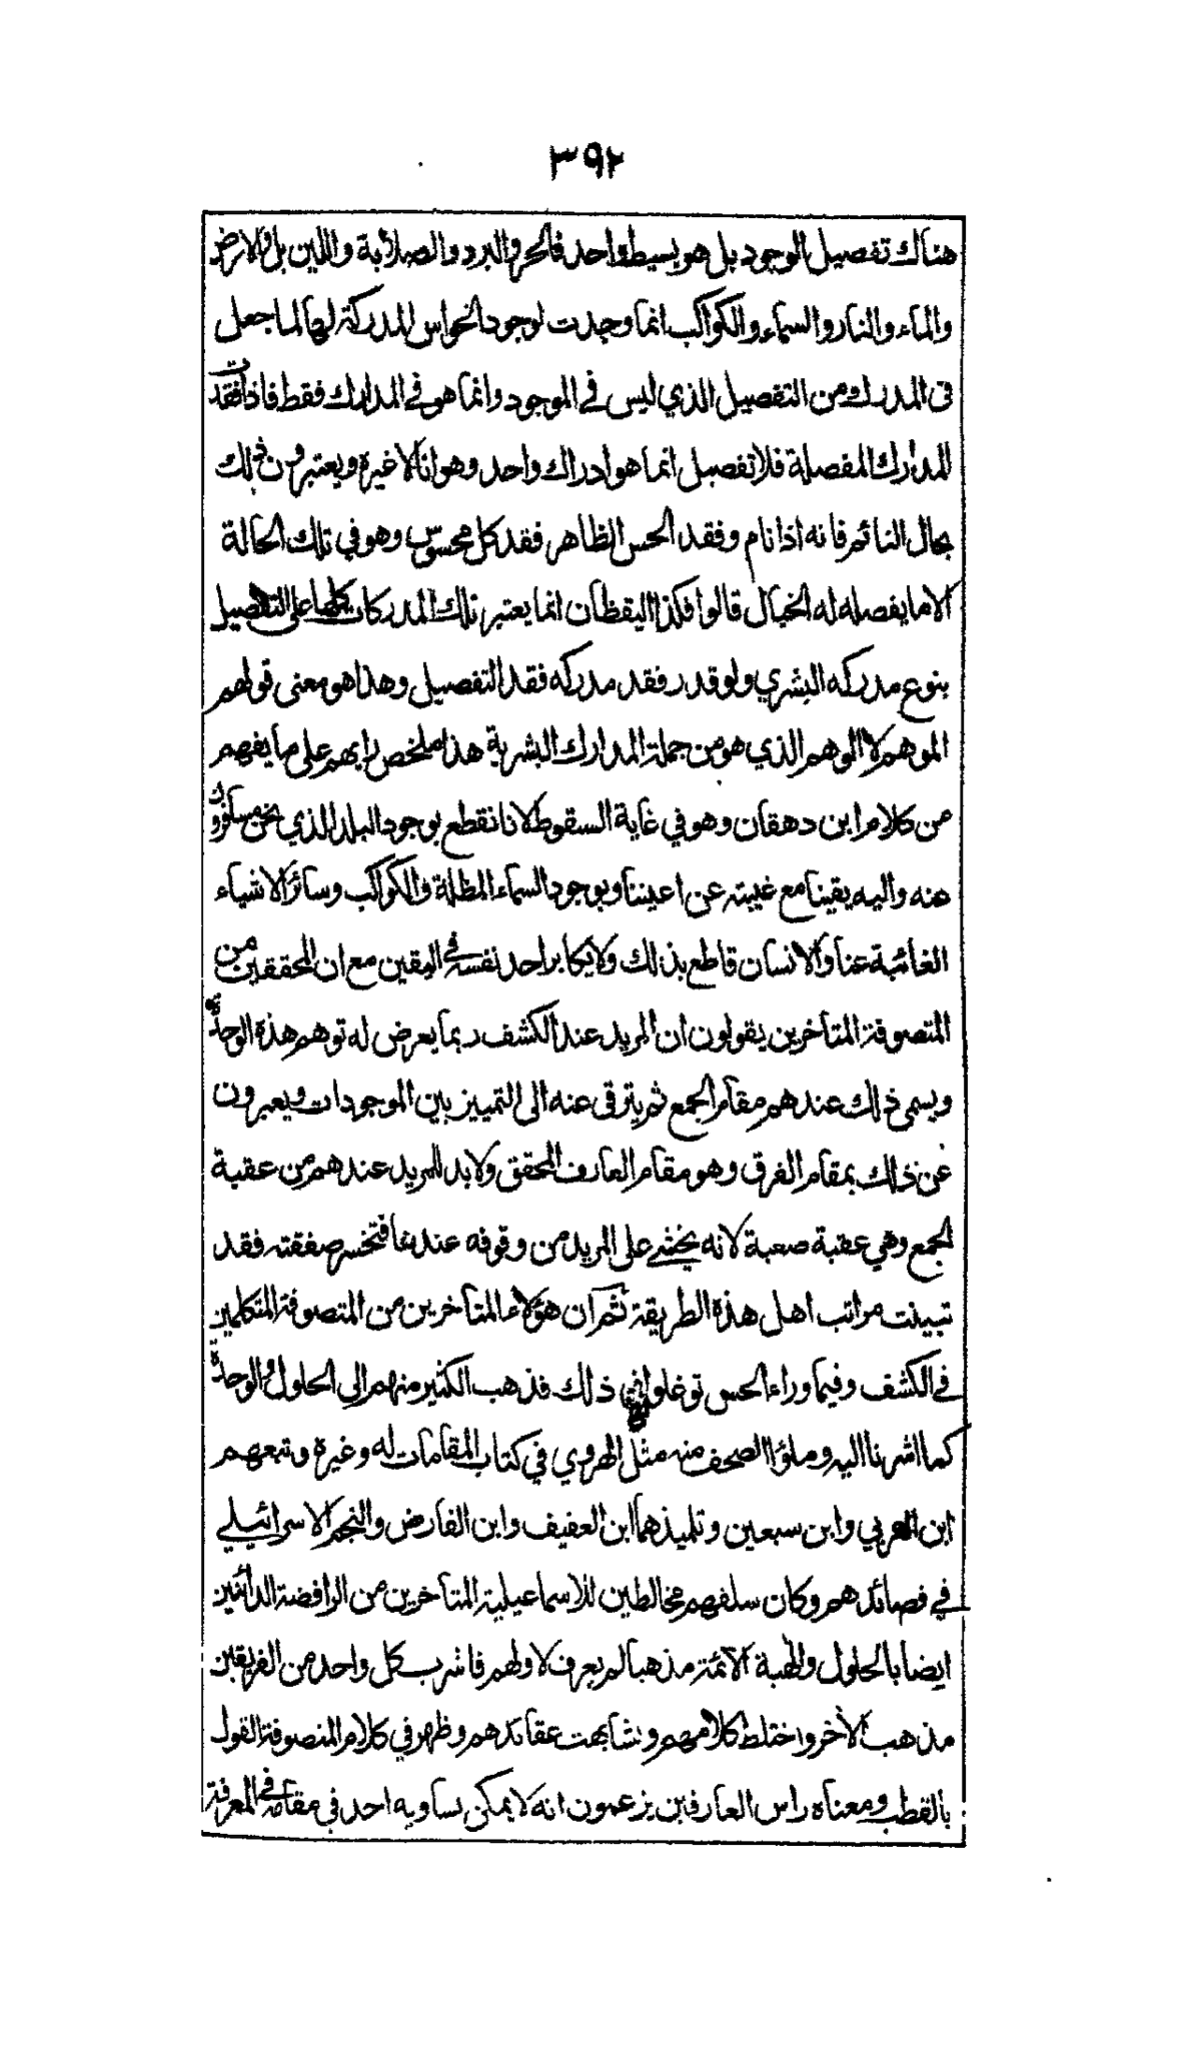 ٣٩٢
هناك تفصيل الوجود بل هو بسيط واحد فالحر والبرد والصلابة واللين بل والارض
والماء والنار والسماء والكواكب انما وجدت لوجود الحواس المدركة لها لما جعل
في المدرك من التفصيل الذي ليس في الموجود وانما هو في المدارك فقط فاذا فقدت
المدارك المفصلة فلا تفصيل انما هو ادراك واحد وهو انا لا غيره ويعتبرون ذلك
بحال النائم فانه اذا نام وفقد الحس الظاهر فقد كل محسوس وهو في تلك الحالة
الا ما يفصله له الخيال قالوا فكذا اليقظان انما يعتبر تلك المدركات كلها على التفصيل
بنوع مدركه البشري ولو قدر فقد مدركه فقد التفصيل وهذا هو معنى قولهم
الموهم لا الوهم الذي هو من جملة المدارك البشرية هذا ملخص رايهم على ما يفهم
من كلام ابن دهقان وهو في غاية السقوط لانا نقطع بوجود البلد الذي نحن مسافرون
عنه واليه يقينا مع غيبته عن اعيننا وبوجود السماء المظلة والكواكب وسائر الاشياء
الغائبة عنا والانسان قاطع بذلك ولا يكابر احد نفسه في اليقين مع ان المحققين من
المتصوفة المتاخرين يقولون ان المريد عند الكشف ربما يعرض له توهم هذه الوحدة
ويسمى ذلك عندهم مقام الجمع ثم يترقى عنه الى التمييز بين الموجودات ويعبرون
عن ذلك بمقام الفرق وهو مقام العارف المحقق ولا بد للمريد عندهم من عقبة
الجمع وهي عقبة صعبة لانه يخشى على المريد من وقوفه عندها فتخسر صفقته فقد
تبينت مراتب اهل هذه الطريقة ثم ان هؤلاء المتاخرين من المتصوفة المتكلمين
في الكشف وفيما وراء الحس توغلوا في ذلك فذهب الكثير منهم الى الحلول والوحدة
كما اشرنا اليه وملؤا الصحف منه مثل الهروي في كتاب المقامات له وغيره وتبعهم
ابن العربي وابن سبعين وتلميذهما ابن العفيف وابن الفارض والنجم الاسرائيلي
في قصائدهم وكان سلفهم مخالطين للاسماعيلية المتاخرين من الرافضة الدائنين
ايضا بالحلول والهية الائمة مذهبا لم يعرف لاولهم فاشرب كل واحد من الفريقين
مذهب الآخر واختلط كلامهم وتشابهت عقائدهم وظهر في كلام المتصوفة القول
بالقطب ومعناه راس العارفين يزعمون انه لا يمكن يساويه احد في مقامه في المعرفة